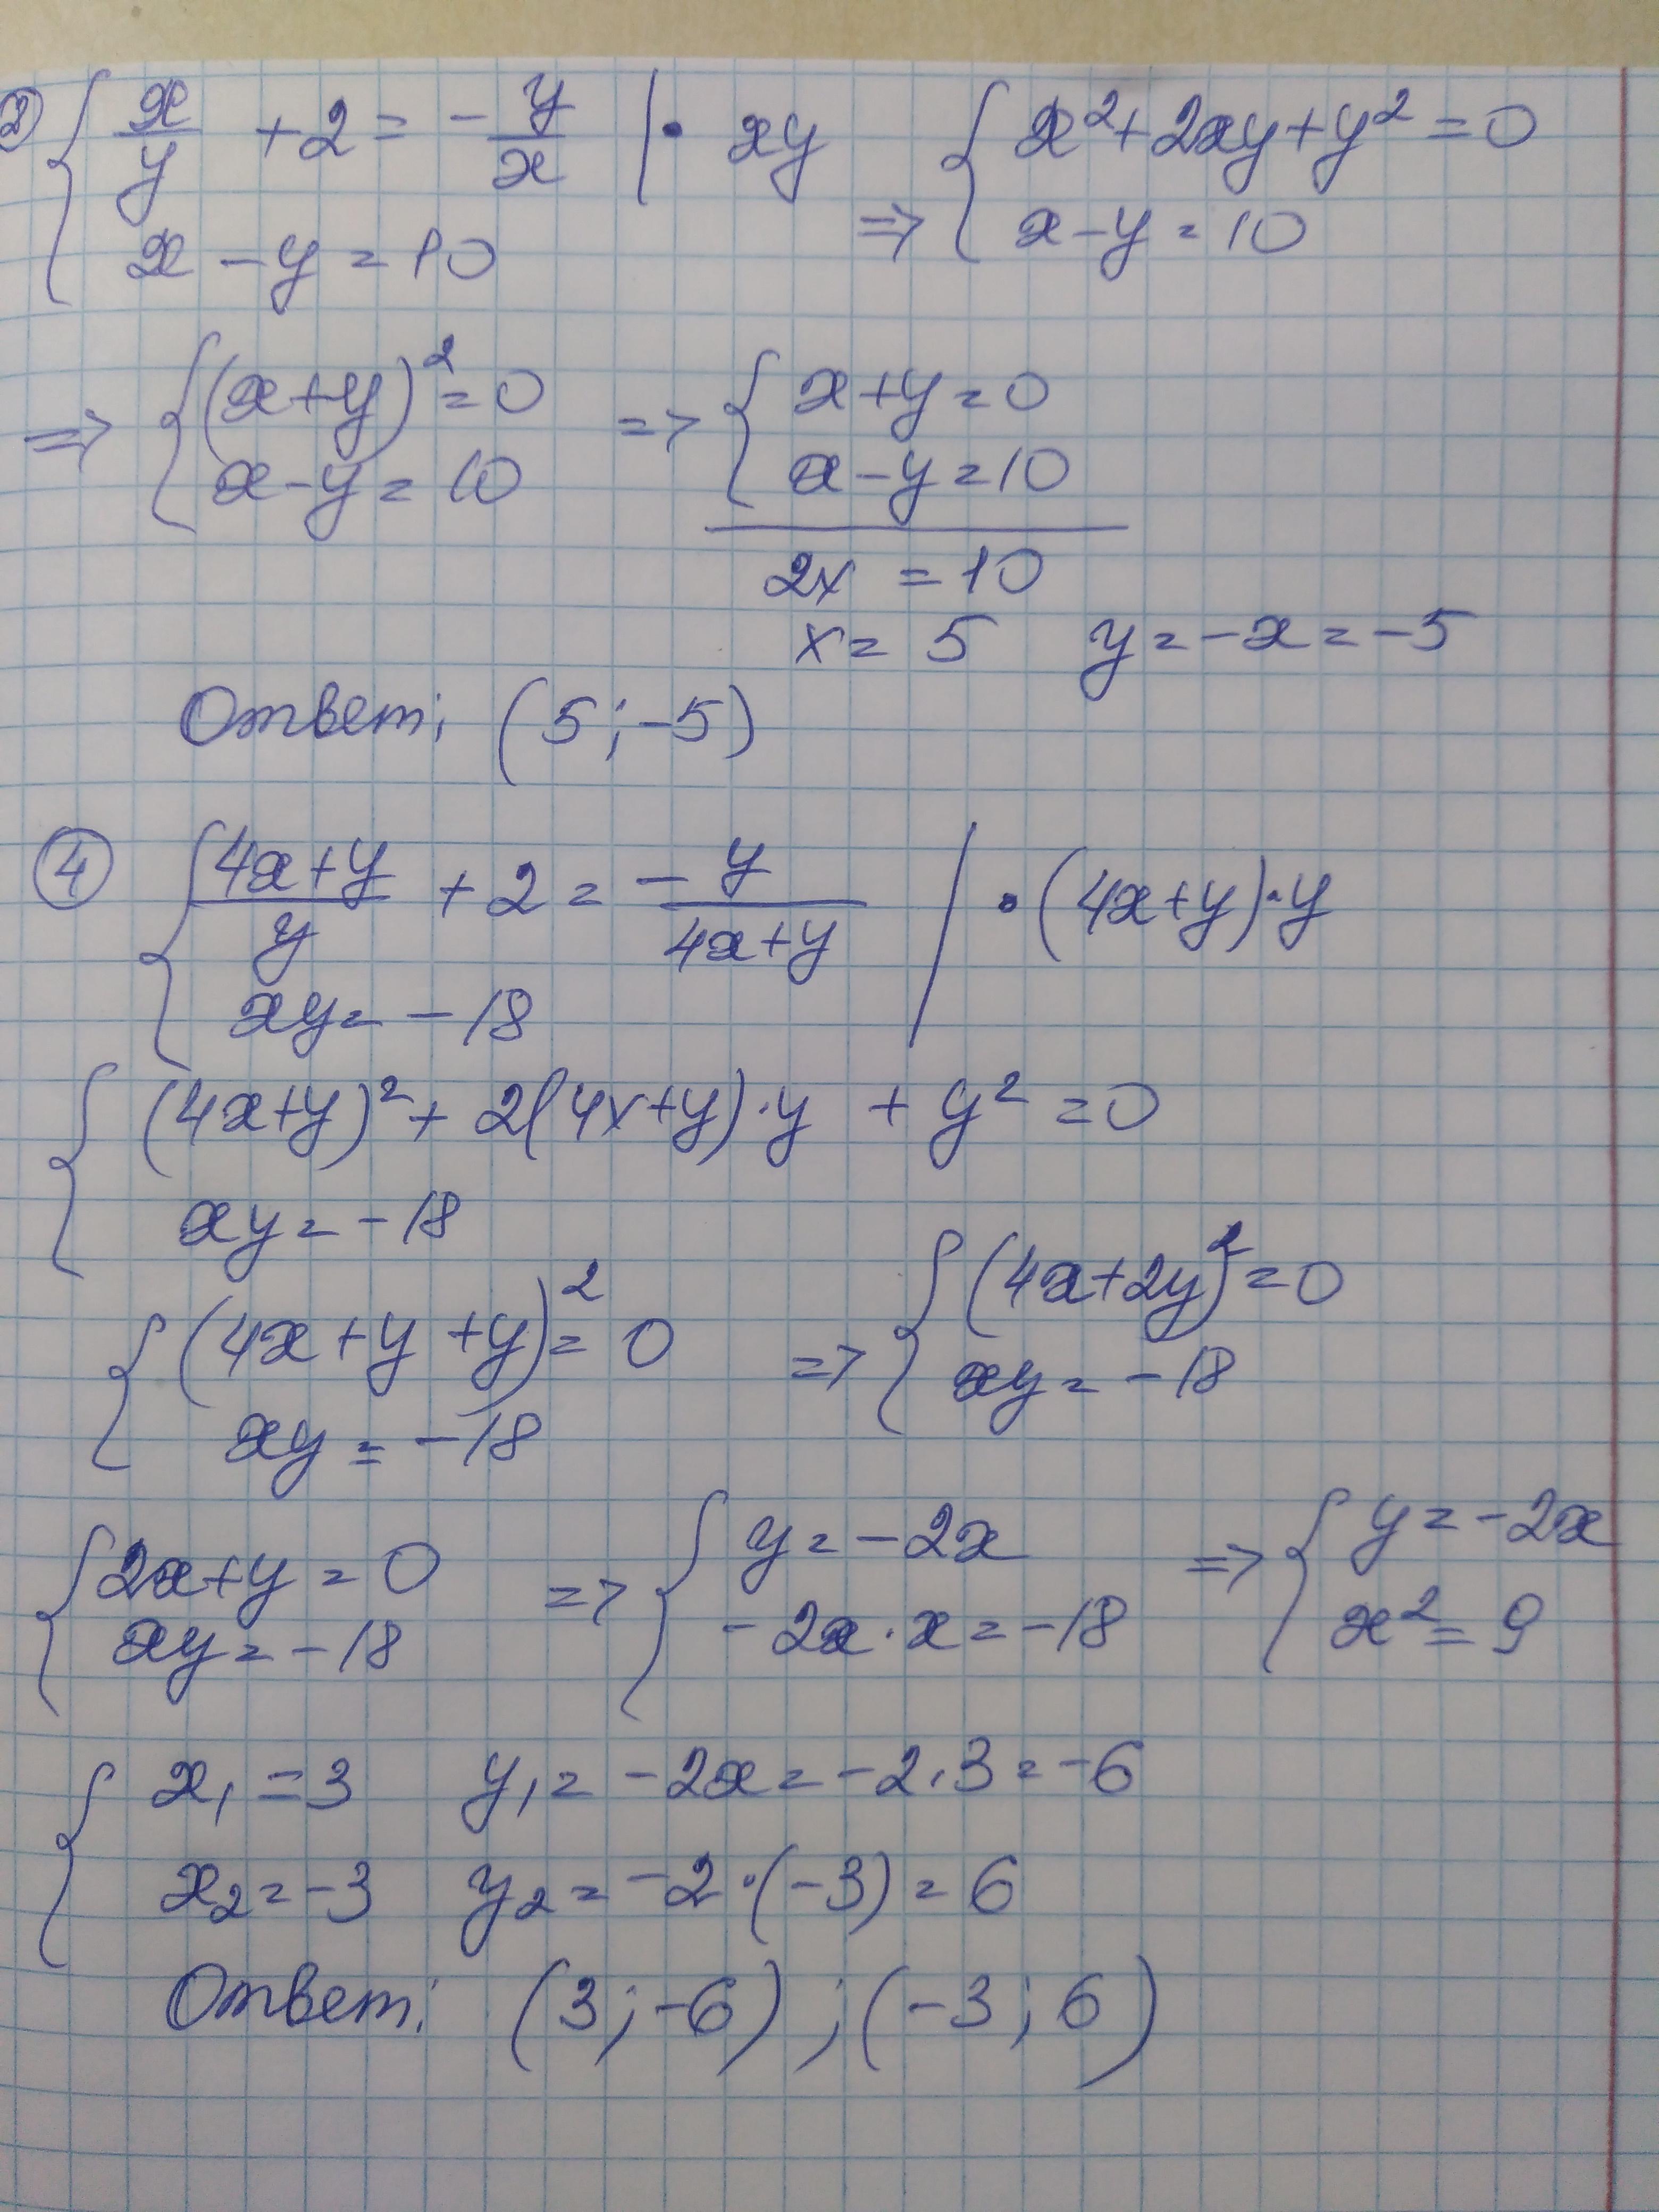 2) { x/y + 2 = - y/x | · xy => { x² + 2xy + y² = 0
x - y = 10 x - y = 10
=> { (x+y)² = 0 => { x + y = 0
x - y = 10 x - y = 10
2x = 10
x = 5 y = -x = -5
Ответ: (5; -5)
4 { (4x+y)/y + 2 = - y/(4x+y) | · (4x+y)·y
xy = -18
{ (4x+y)² + 2(4x+y)·y + y² = 0
xy = -18
{ (4x + y + y)² = 0 => { (4x+2y)² = 0
xy = -18 xy = -18
{ 2x + y = 0 => { y = -2x => { y = -2x
xy = -18 -2x · x = -18 x² = 9
{ x₁ = 3 y₁ = -2x = -2·3 = -6
x₂ = -3 y₂ = -2·(-3) = 6
Ответ: (3; -6); (-3; 6)